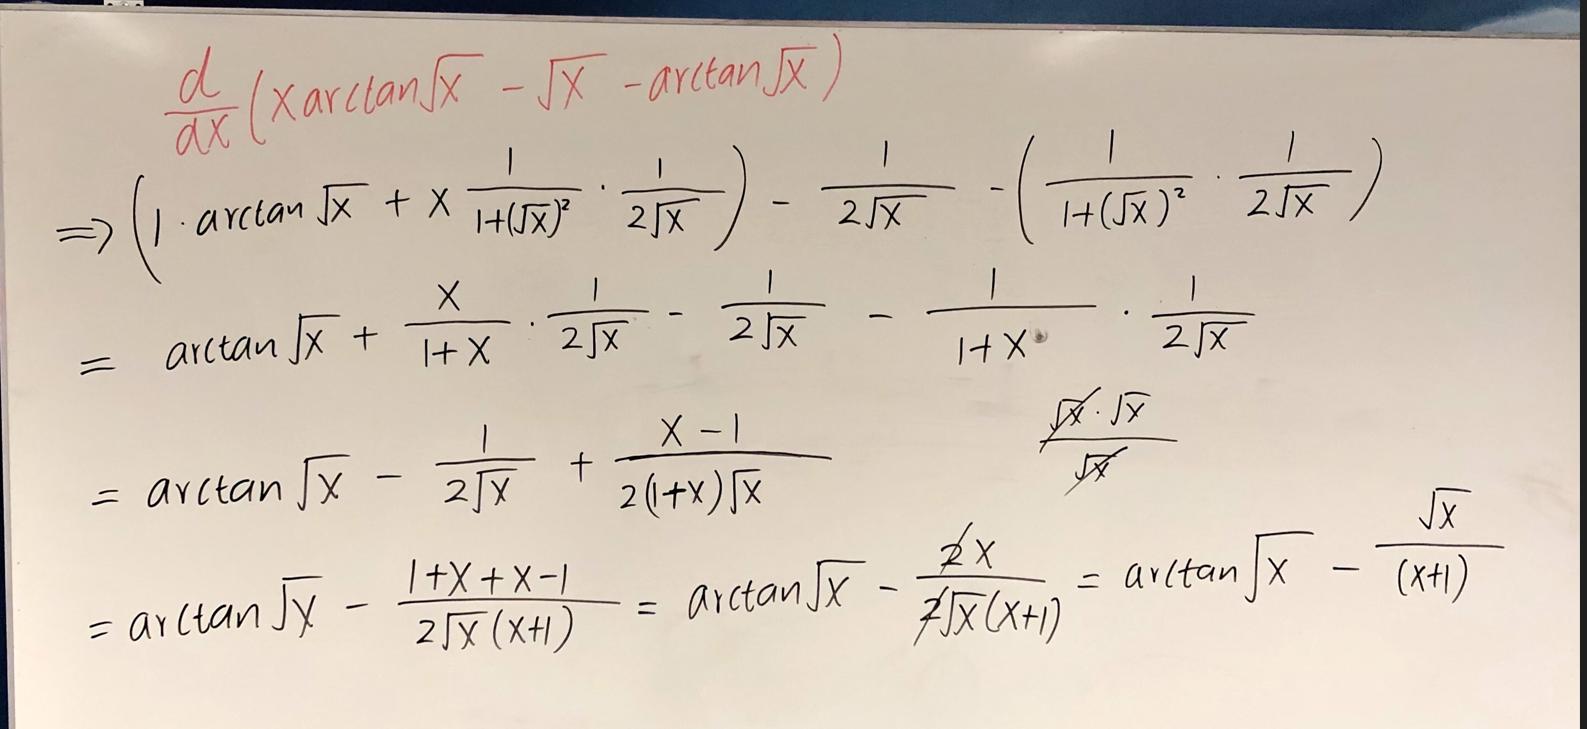 d/dx (x arctan√x - √x - arctan√x)
⇒ (1 · arctan √x + x 1/(1+(√x)²) · 1/(2√x)) - 1/(2√x) - (1/(1+(√x)²) · 1/(2√x))
= arctan √x + x/(1+x) · 1/(2√x) - 1/(2√x) - 1/(1+x) · 1/(2√x)
= arctan √x - 1/(2√x) + (x-1)/(2(1+x)√x)
(√x · √x)/√x
= arctan √x - (1+x+x-1)/(2√x(x+1)) = arctan√x - 2x/(2√x(x+1)) = arctan√x - √x/(x+1)